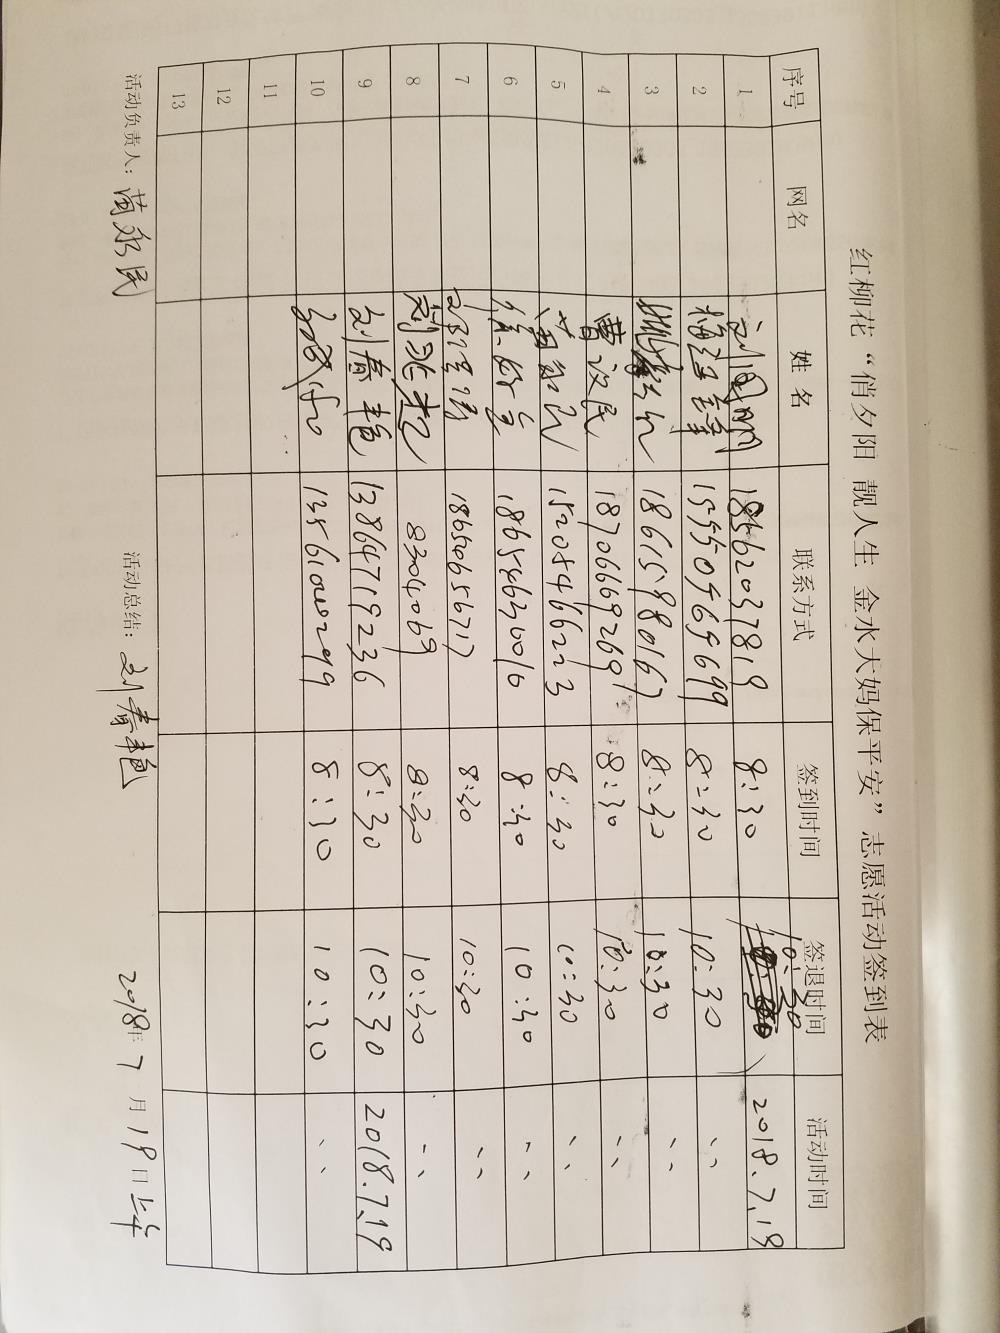 红柳花“俏夕阳 靓人生 金水大妈保平安”志愿活动签到表
序号 网名 姓名 联系方式 签到时间 签退时间 活动时间
1 18562037819 8:30 10:30 2018.7.19
2 15550569699 8:30 10:30 〃
3 18615980167 8:30 10:30 〃
4 曹汉民 18706669269 8:30 10:30 〃
5 15205466223 8:30 10:30 〃
6 18654630016 8:30 10:30 〃
7 18650656717 8:30 10:30 〃
8 8304069 8:30 10:30 〃
9 刘春艳 13864719236 8:30 10:30 2018.7.19
10 8:30 10:30 〃
11
12
13
活动负责人：苗永民 活动总结：刘春艳 2018年7月19日上午